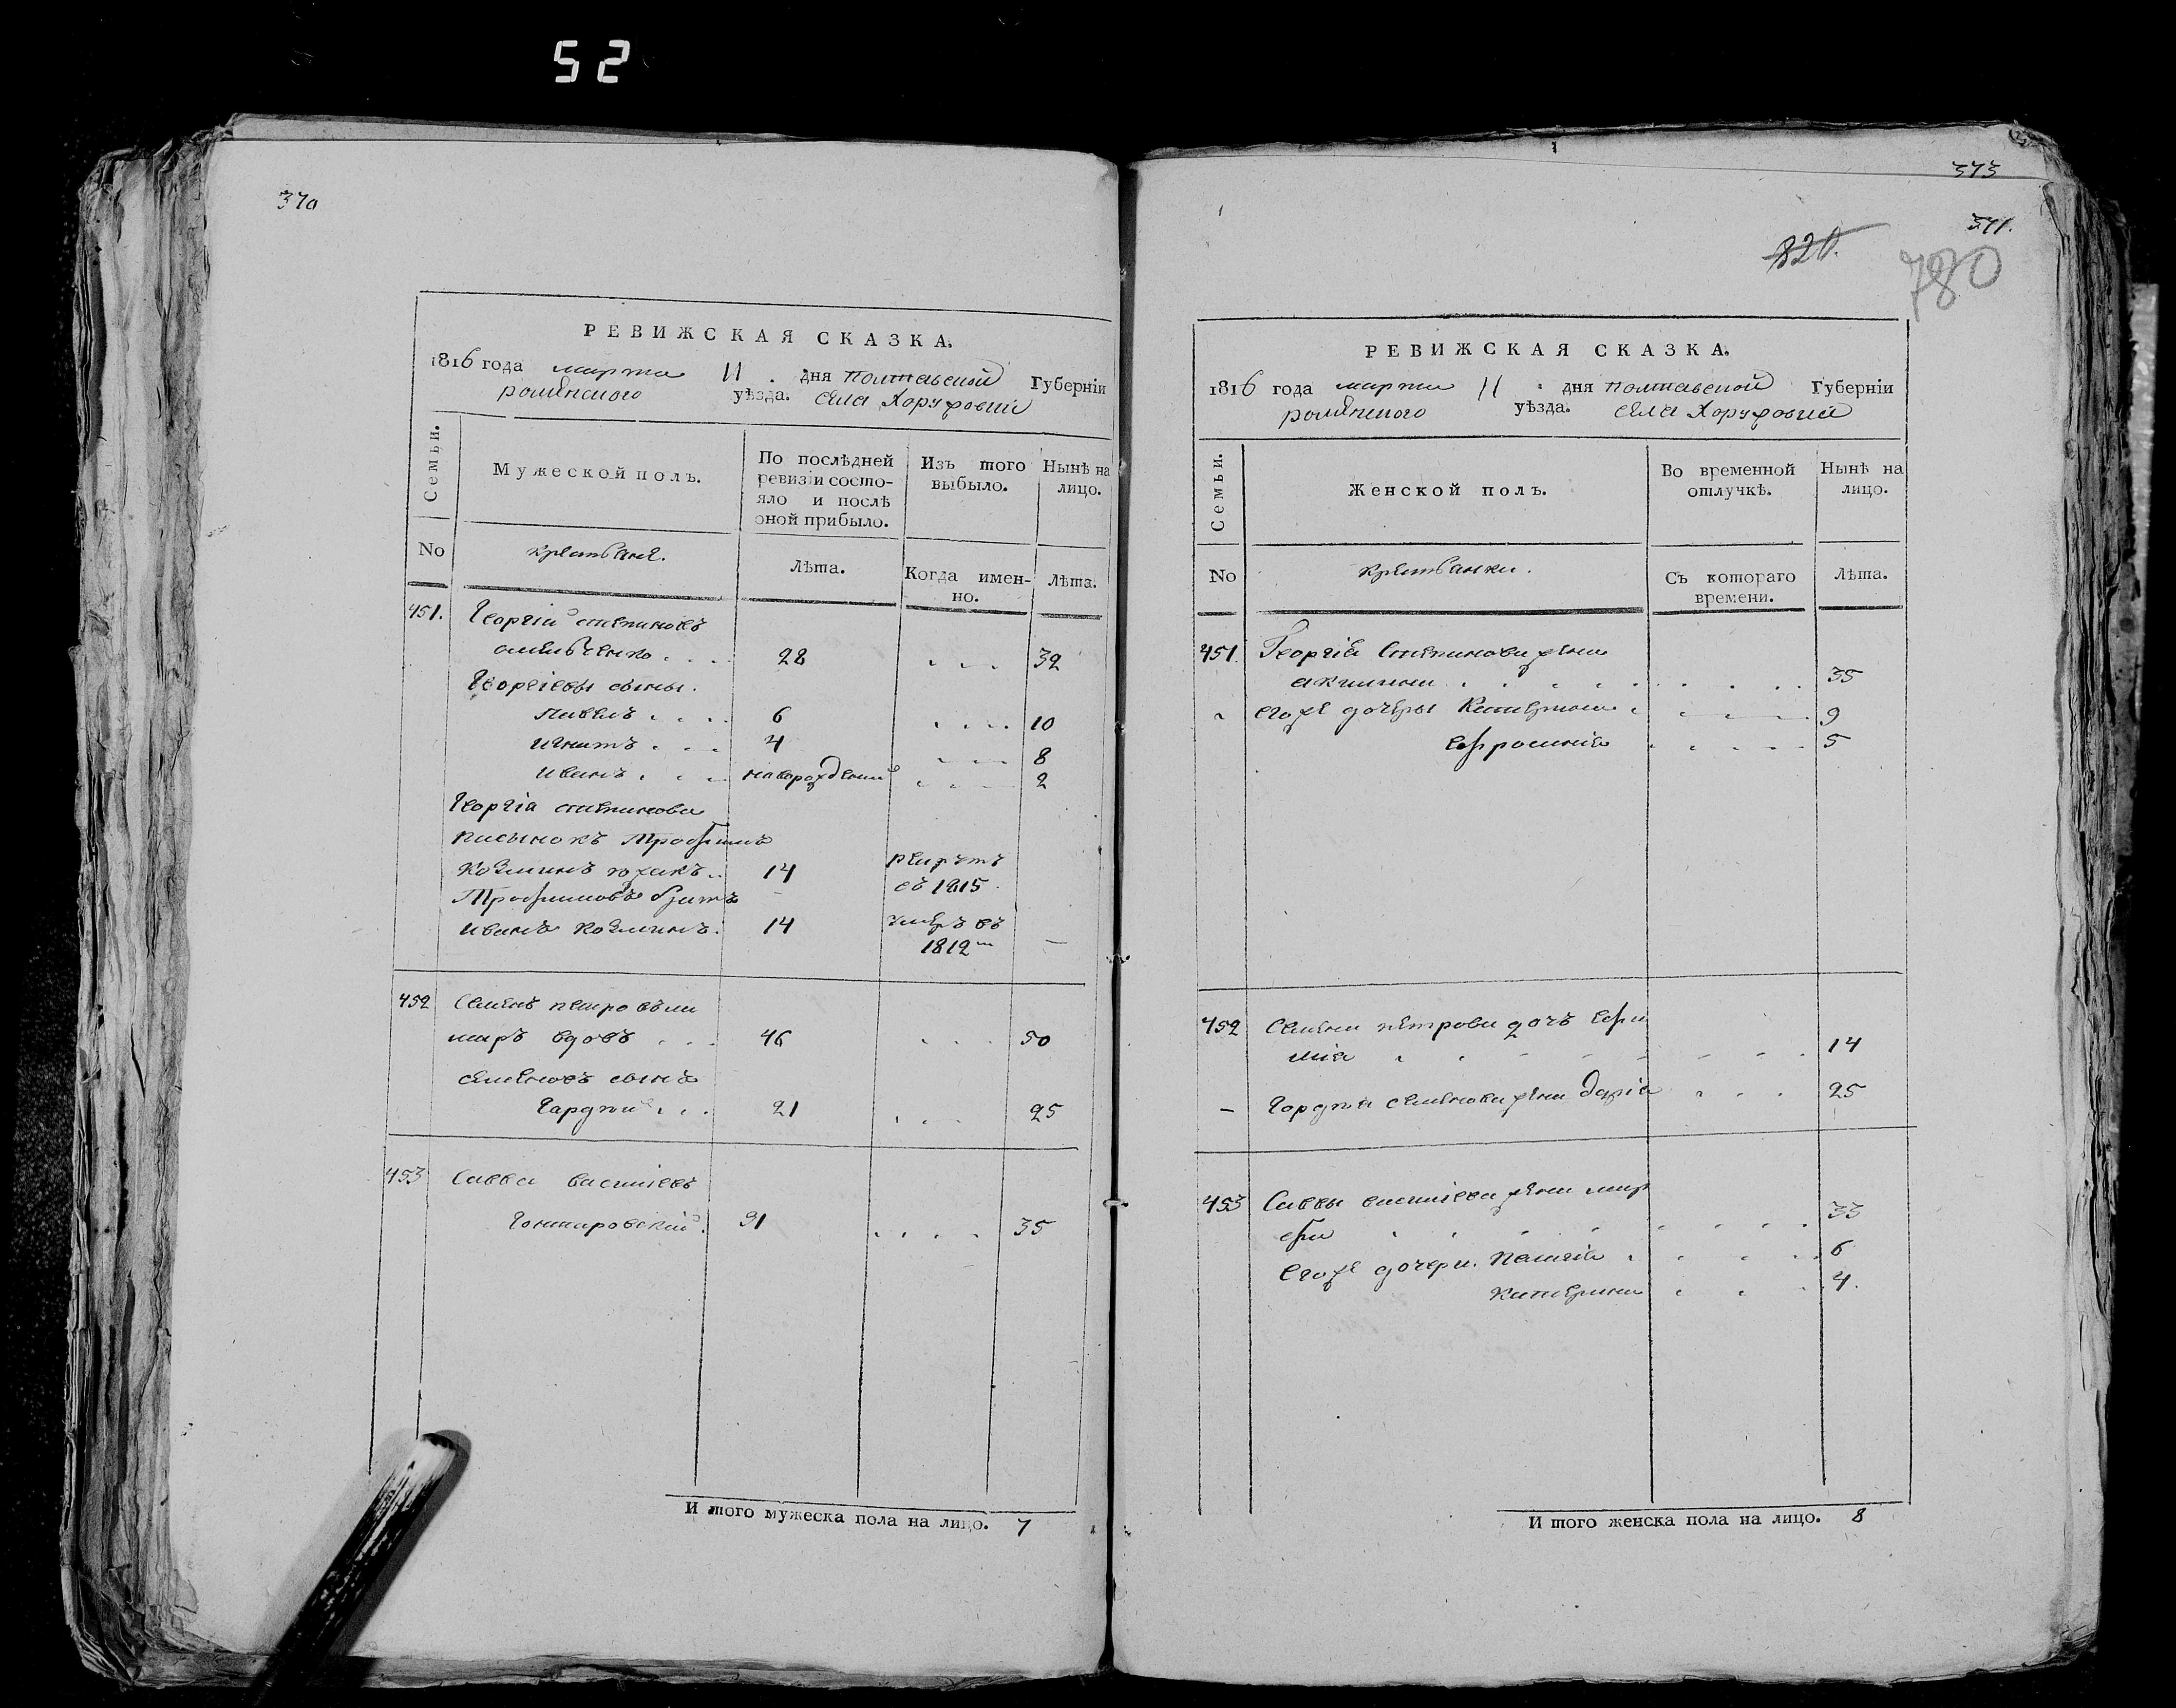 52
370
РЕВИЖСКАЯ СКАЗКА.
1816 года марта 11 . дня полтавской Губерніи
роменского уѣзда. села Хоружовки
Семьи.
Мужеской полъ.
По послѣдней ревизіи состояло и послѣ оной прибыло.
Изъ того выбыло.
Нынѣ на лицо.
No
крестьяне.
Лѣта.
Когда именно.
Лѣта.
451. Георгій степановъ
омельченко . . . 28 . . . 32
Георгіевы сыны.
павелъ . . . 6 . . . . 10
игнатъ . . . 4 . . . 8
иванъ . . . новорожденный . . . . 2
Георгіа степанова
пасынокъ Трофимъ
козминъ .. 14 рекрутъ
въ 1815.
Трофимовъ братъ -
иванъ козминъ. 14 умеръ въ
1812 —
452 Семенъ петровъ
вдовъ . . . 46 . . . 50
семеновъ сынъ
Гордѣй . . . 21 . . . 25
453 Савва василіевъ
31 . . . . 35
И того мужеска пола на лицо. 7
373
371.
820.
780
РЕВИЖСКАЯ СКАЗКА.
1816 года марта 11 . дня полтавской Губерніи
роменского уѣзда. села Хоружовки
Семьи.
Женской полъ.
Во временной отлучкѣ.
Нынѣ на лицо.
No
крестьянки.
Съ котораго времени.
Лѣта.
451. Георгіа Степанова жена
акилина . . . . . . . . 35
егоже дочеры Катерина . . . . . 9
ефросиніа . . . . . 5
452 Семена петрова дочъ ефи
міа . . - - - - - . 14
— Гордѣя семенова жена Даріа . . . 25
453 Саввы василіева жена мар
фа . . . . . . . . 33
егоже дочери. Пелагіа . . . . 6
Катерина . . . 4.
И того женска пола на лицо. 8